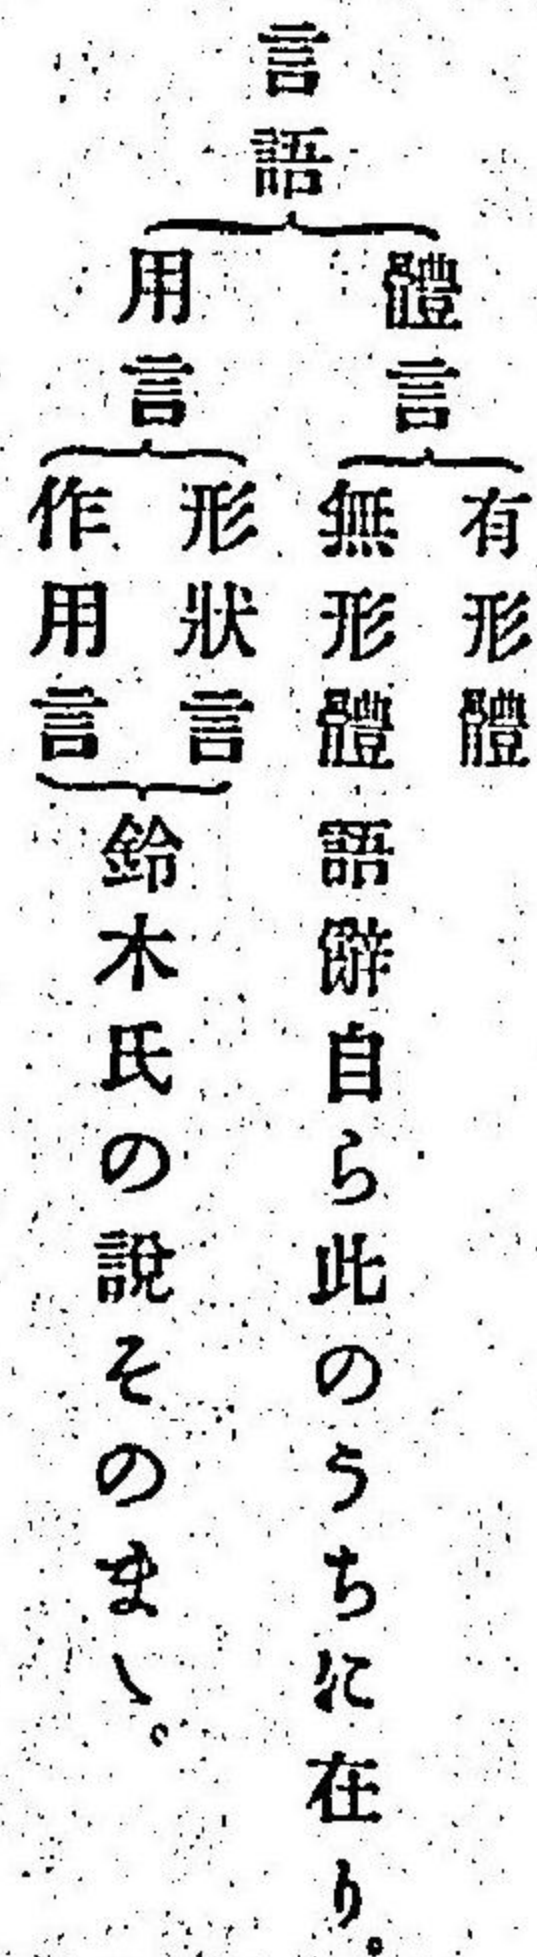 言語
體言
有形體
無形體 語辭自ら此のうちに在り。
用言
形狀言
作用言
鈴木氏の說そのまヽ。